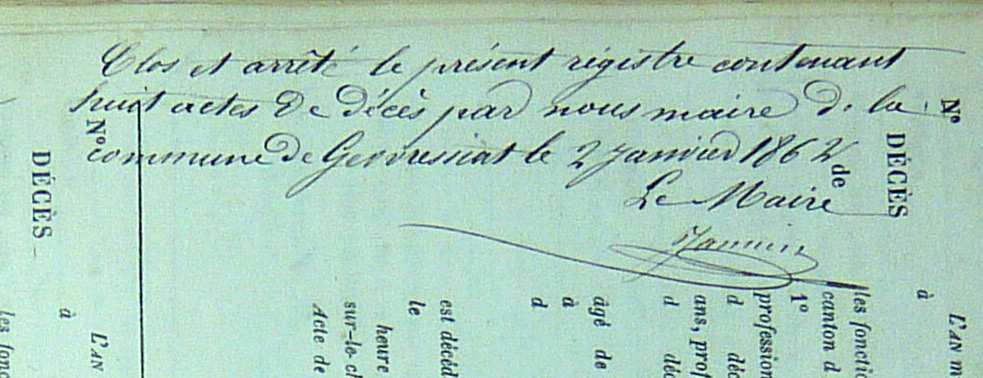 Clos et arrêté le présent régistre contenant
huit actes de décès par nous maire de la
commune de Gervressiat le 2 Janvier 1862
Le Maire
Jannin
Nº
DÉCÈS
de
Nº
DÉCÈS
à
L'AN
les fonc
Acte de
sur-le-ch
heure
le
est décéd
d
à
âgé de
d déc
ans, prof
d déc
profession
1º
canton d
les fonctio
à
L'AN m